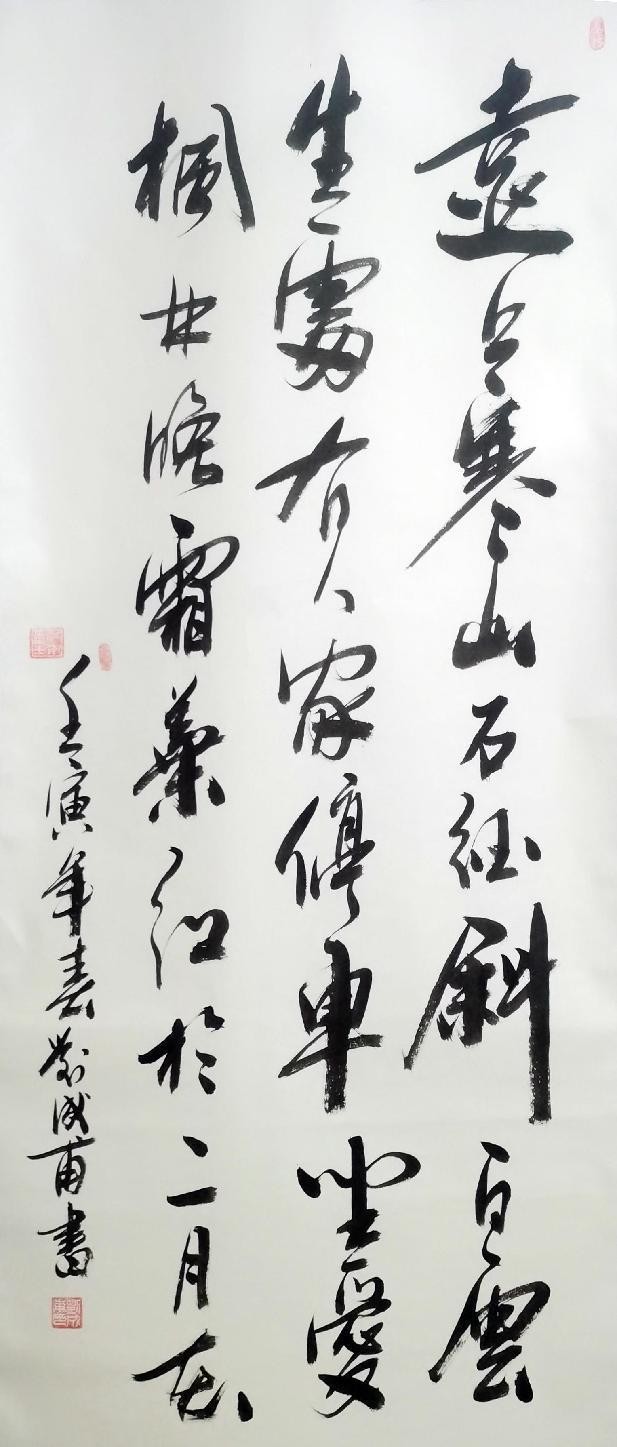 遠上寒山石徑斜白雲
生處有人家停車坐愛
楓林晚霜葉紅於二月花
壬寅年春劉成甫書